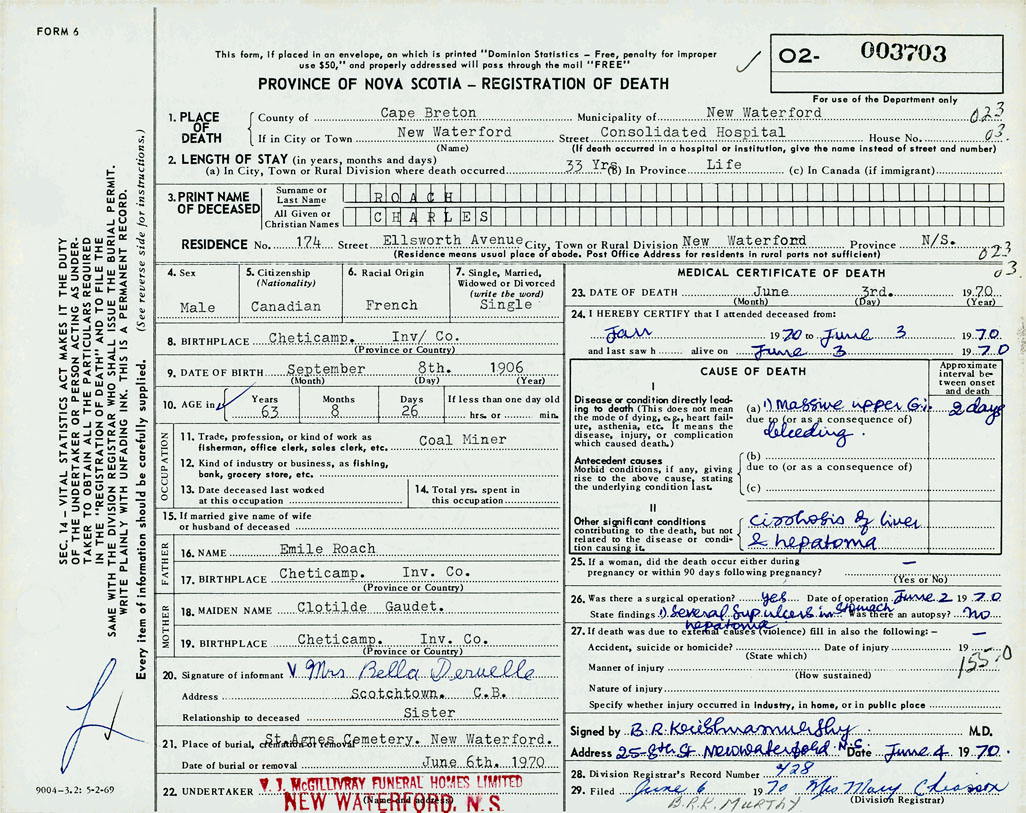 FORM 6
This form, if placed in an envelope, on which is printed "Dominion Statistics – Free, penalty for improper
use $50," and properly addressed will pass through the mail "FREE"
PROVINCE OF NOVA SCOTIA – REGISTRATION OF DEATH
O2- 003703
For use of the Department only
1. PLACE OF DEATH
County of Cape Breton Municipality of New Waterford 023
If in City or Town New Waterford Street Consolidated Hospital House No. 03.
(Name) (If death occurred in a hospital or institution, give the name instead of street and number)
2. LENGTH OF STAY (in years, months and days)
(a) In City, Town or Rural Division where death occurred 33 Yrs (b) In Province Life (c) In Canada (if immigrant)
3. PRINT NAME OF DECEASED
Surname or Last Name ROACH
All Given or Christian Names CHARLES
RESIDENCE No. 174 Street Ellsworth Avenue City, Town or Rural Division New Waterford Province N/S.
(Residence means usual place of abode. Post Office Address for residents in rural parts not sufficient) 023
03.
4. Sex
Male
5. Citizenship
(Nationality)
Canadian
6. Racial Origin
French
7. Single, Married,
Widowed or Divorced
(write the word)
Single
8. BIRTHPLACE Cheticamp. Inv/ Co.
(Province or Country)
9. DATE OF BIRTH September 8th. 1906
(Month) (Day) (Year)
10. AGE in
Years Months Days If less than one day old
63 8 26 hrs. or min.
OCCUPATION
11. Trade, profession, or kind of work as
fisherman, office clerk, sales clerk, etc. Coal Miner
12. Kind of industry or business, as fishing,
bank, grocery store, etc.
13. Date deceased last worked
at this occupation
14. Total yrs. spent in
this occupation
15. If married give name of wife
or husband of deceased
FATHER
16. NAME Emile Roach
17. BIRTHPLACE Cheticamp. Inv. Co.
(Province or Country)
MOTHER
18. MAIDEN NAME Clotilde Gaudet.
19. BIRTHPLACE Cheticamp. Inv. Co.
(Province or Country)
20. Signature of informant Mrs Bella Deruelle
Address Scotchtown. C.B.
Relationship to deceased Sister
21. Place of burial, cremation or removal St.Agnes Cemetery. New Waterford.
Date of burial or removal June 6th. 1970
22. UNDERTAKER V. J. McGILLIVRAY FUNERAL HOMES LIMITED
(Name and address)
NEW WATERFORD, N.S.
MEDICAL CERTIFICATE OF DEATH
23. DATE OF DEATH June 3rd. 1970
(Month) (Day) (Year)
24. I HEREBY CERTIFY that I attended deceased from:
Jan 1970 to June 3 1970
and last saw h alive on June 3 1970
CAUSE OF DEATH
Approximate
interval be-
tween onset
and death
I
Disease or condition directly lead-
ing to death (This does not mean
the mode of dying, e.g., heart fail-
ure, asthenia, etc. It means the
disease, injury, or complication
which caused death.)
(a) 1) Massive upper G.i. 2 days
due to (or as a consequence of)
bleeding.
Antecedent causes
Morbid conditions, if any, giving
rise to the above cause, stating
the underlying condition last.
(b)
due to (or as a consequence of)
(c)
II
Other significant conditions
contributing to the death, but not
related to the disease or condi-
tion causing it.
cirrhosis of liver
& hepatoma
25. If a woman, did the death occur either during
pregnancy or within 90 days following pregnancy? –
(Yes or No)
26. Was there a surgical operation? yes Date of operation June 2 1970
State findings 1) Several Sup ulcers in Stomach Was there an autopsy? No
hepatoma
27. If death was due to external causes (violence) fill in also the following: – –
Accident, suicide or homicide? Date of injury 19
(State which) 1550
Manner of injury
(How sustained)
Nature of injury
Specify whether injury occurred in industry, in home, or in public place
Signed by B.R.Krishnamurthy M.D.
Address 25-8th St New Waterford N.S. Date June 4 1970.
28. Division Registrar's Record Number 428
29. Filed June 6 1970 Mrs Mary Chiasson
(Division Registrar)
B.R.K. MURTHY
SEC. 14 – VITAL STATISTICS ACT MAKES IT THE DUTY
OF THE UNDERTAKER OR PERSON ACTING AS UNDER-
TAKER TO OBTAIN ALL THE PARTICULARS REQUIRED
IN THE "REGISTRATION OF DEATH" AND TO FILE THE
SAME WITH THE DIVISION REGISTRAR WHO SHALL ISSUE THE BURIAL PERMIT.
WRITE PLAINLY WITH UNFADING INK. THIS IS A PERMANENT RECORD.
Every item of information should be carefully supplied. (See reverse side for instructions.)
9004-3.2: 5-2-69